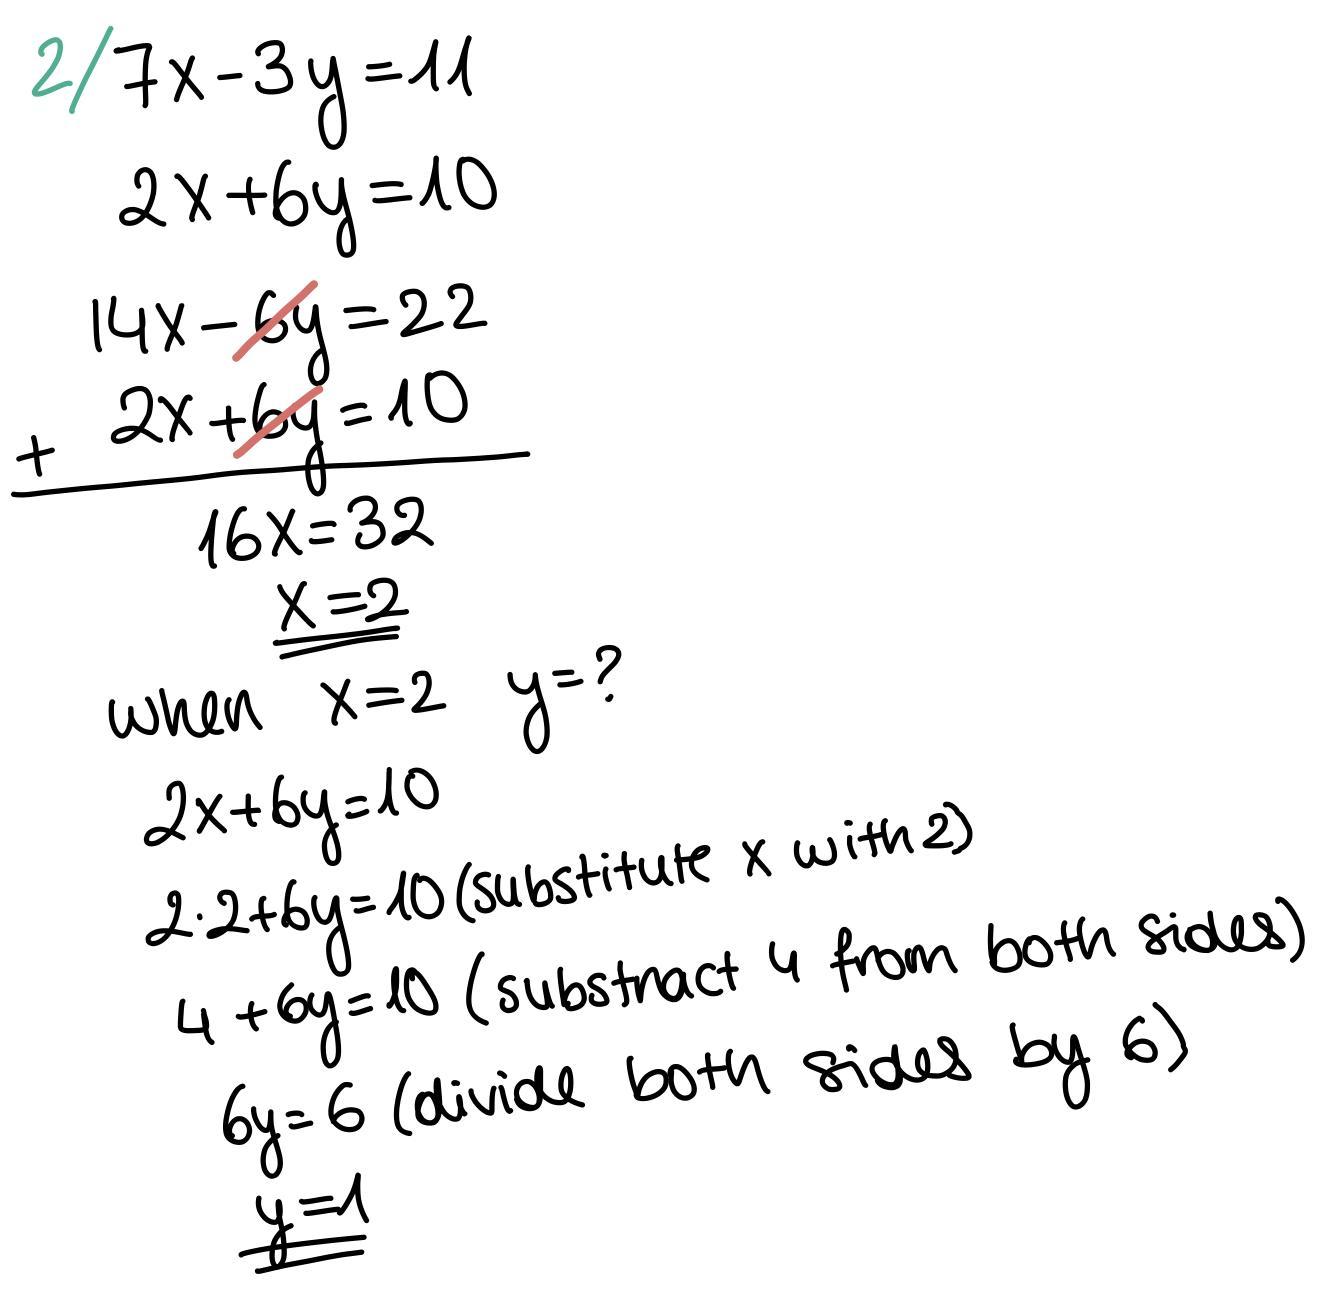 2/7x-3y=11
2x+6y=10
14x-6y=22
2x+6y=10
+
16x=32
x=2
when x=2 y=?
2x+6y=10
2·2+6y=10 (substitute x with 2)
4+6y=10 (substract 4 from both sides)
6y=6 (divide both sides by 6)
y=1